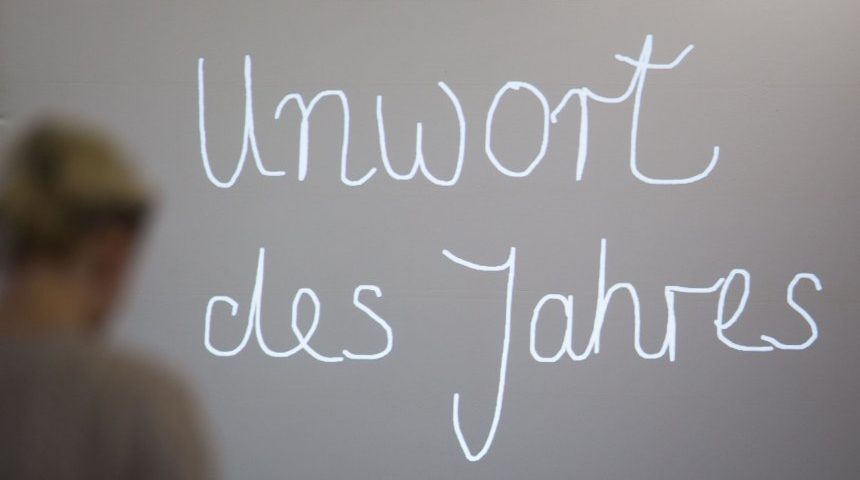 Unwort
des Jahres